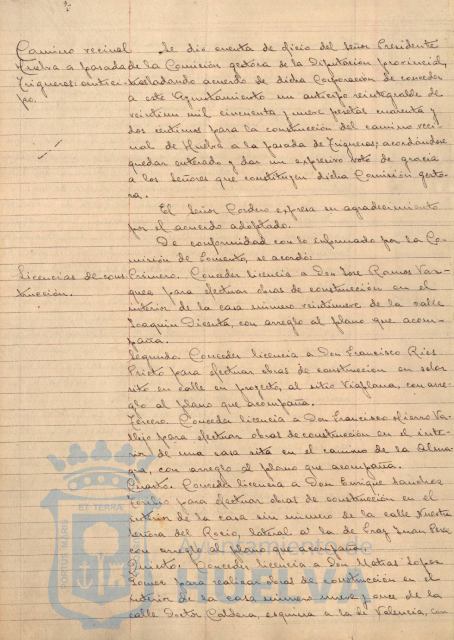 Camino vecinal
Huelva a pasada de
Trigueros: antici-
po.
Se dio cuenta de oficio del Señor Presidente
de la Comisión gestora de la Diputación provincial,
trasladando acuerdo de dicha Corporación de conceder
a este Ayuntamiento un anticipo reintegrable de
veintiun mil cincuenta y nueve pesetas cuarenta y
dos centimos para la construcción del camino veci-
nal de Huelva a la pasada de Trigueros; acordándose
quedar enterado y dar un expresivo voto de gracia
a los Señores que constituyen dicha Comisión gesto-
ra.
El Señor Cordero expresa su agradecimiento
por el acuerdo adoptado.
De conformidad con lo informado por la Co-
misión de Fomento, se acordó:
Licencias de cons-
trucción.
Primero. Conceder licencia a Don José Ramos Vaz-
quez para efectuar obras de construcción en el
interior de la casa número veintinueve de la calle
Joaquin Dicenta, con arreglo al plano que acom-
paña.
Segundo. Conceder licencia a Don Francisco Rios
Prieto para efectuar obras de construccion en solar
sito en calle en proyecto, al sitio Viaplana, con arre-
glo al plano que acompaña.
Tercero. Conceder licencia a Don Francisco Hierro Va-
llejo para efectuar obras de construcción en el inte-
rior de una casa sita en el camino de la Alma-
gra, con arreglo al plano que acompaña.
Cuarto. Conceder licencia a Don Enrique Sanchez
para efectuar obras de construcción en el
interior de la casa sin número de la calle Nuestra
Señora del Rocio, lateral a la de Fray Juan Perez
con arreglo al plano que acompaña.
Quinto. Conceder licencia a Don Matias Lopez
Gomez para realizar obras de construcción en el
interior de la casa número nueve y once de la
calle Doctor Caldera, esquina a la de Valencia, con
PORTUS MARIS
ET TERRA
Ayuntamiento de
HUELVA